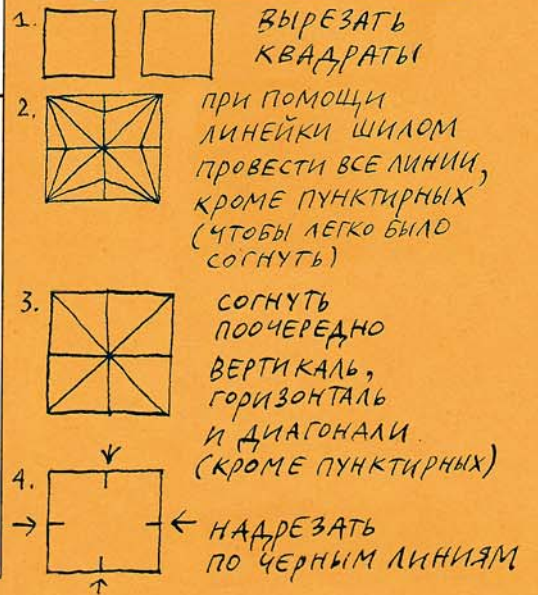 1. ВЫРЕЗАТЬ
КВАДРАТЫ
2. ПРИ ПОМОЩИ
ЛИНЕЙКИ ШИЛОМ
ПРОВЕСТИ ВСЕ ЛИНИИ,
КРОМЕ ПУНКТИРНЫХ
(ЧТОБЫ ЛЕГКО БЫЛО
СОГНУТЬ)
3. СОГНУТЬ
ПООЧЕРЕДНО
ВЕРТИКАЛЬ,
ГОРИЗОНТАЛЬ
И ДИАГОНАЛИ.
(КРОМЕ ПУНКТИРНЫХ)
4. НАДРЕЗАТЬ
ПО ЧЕРНЫМ ЛИНИЯМ